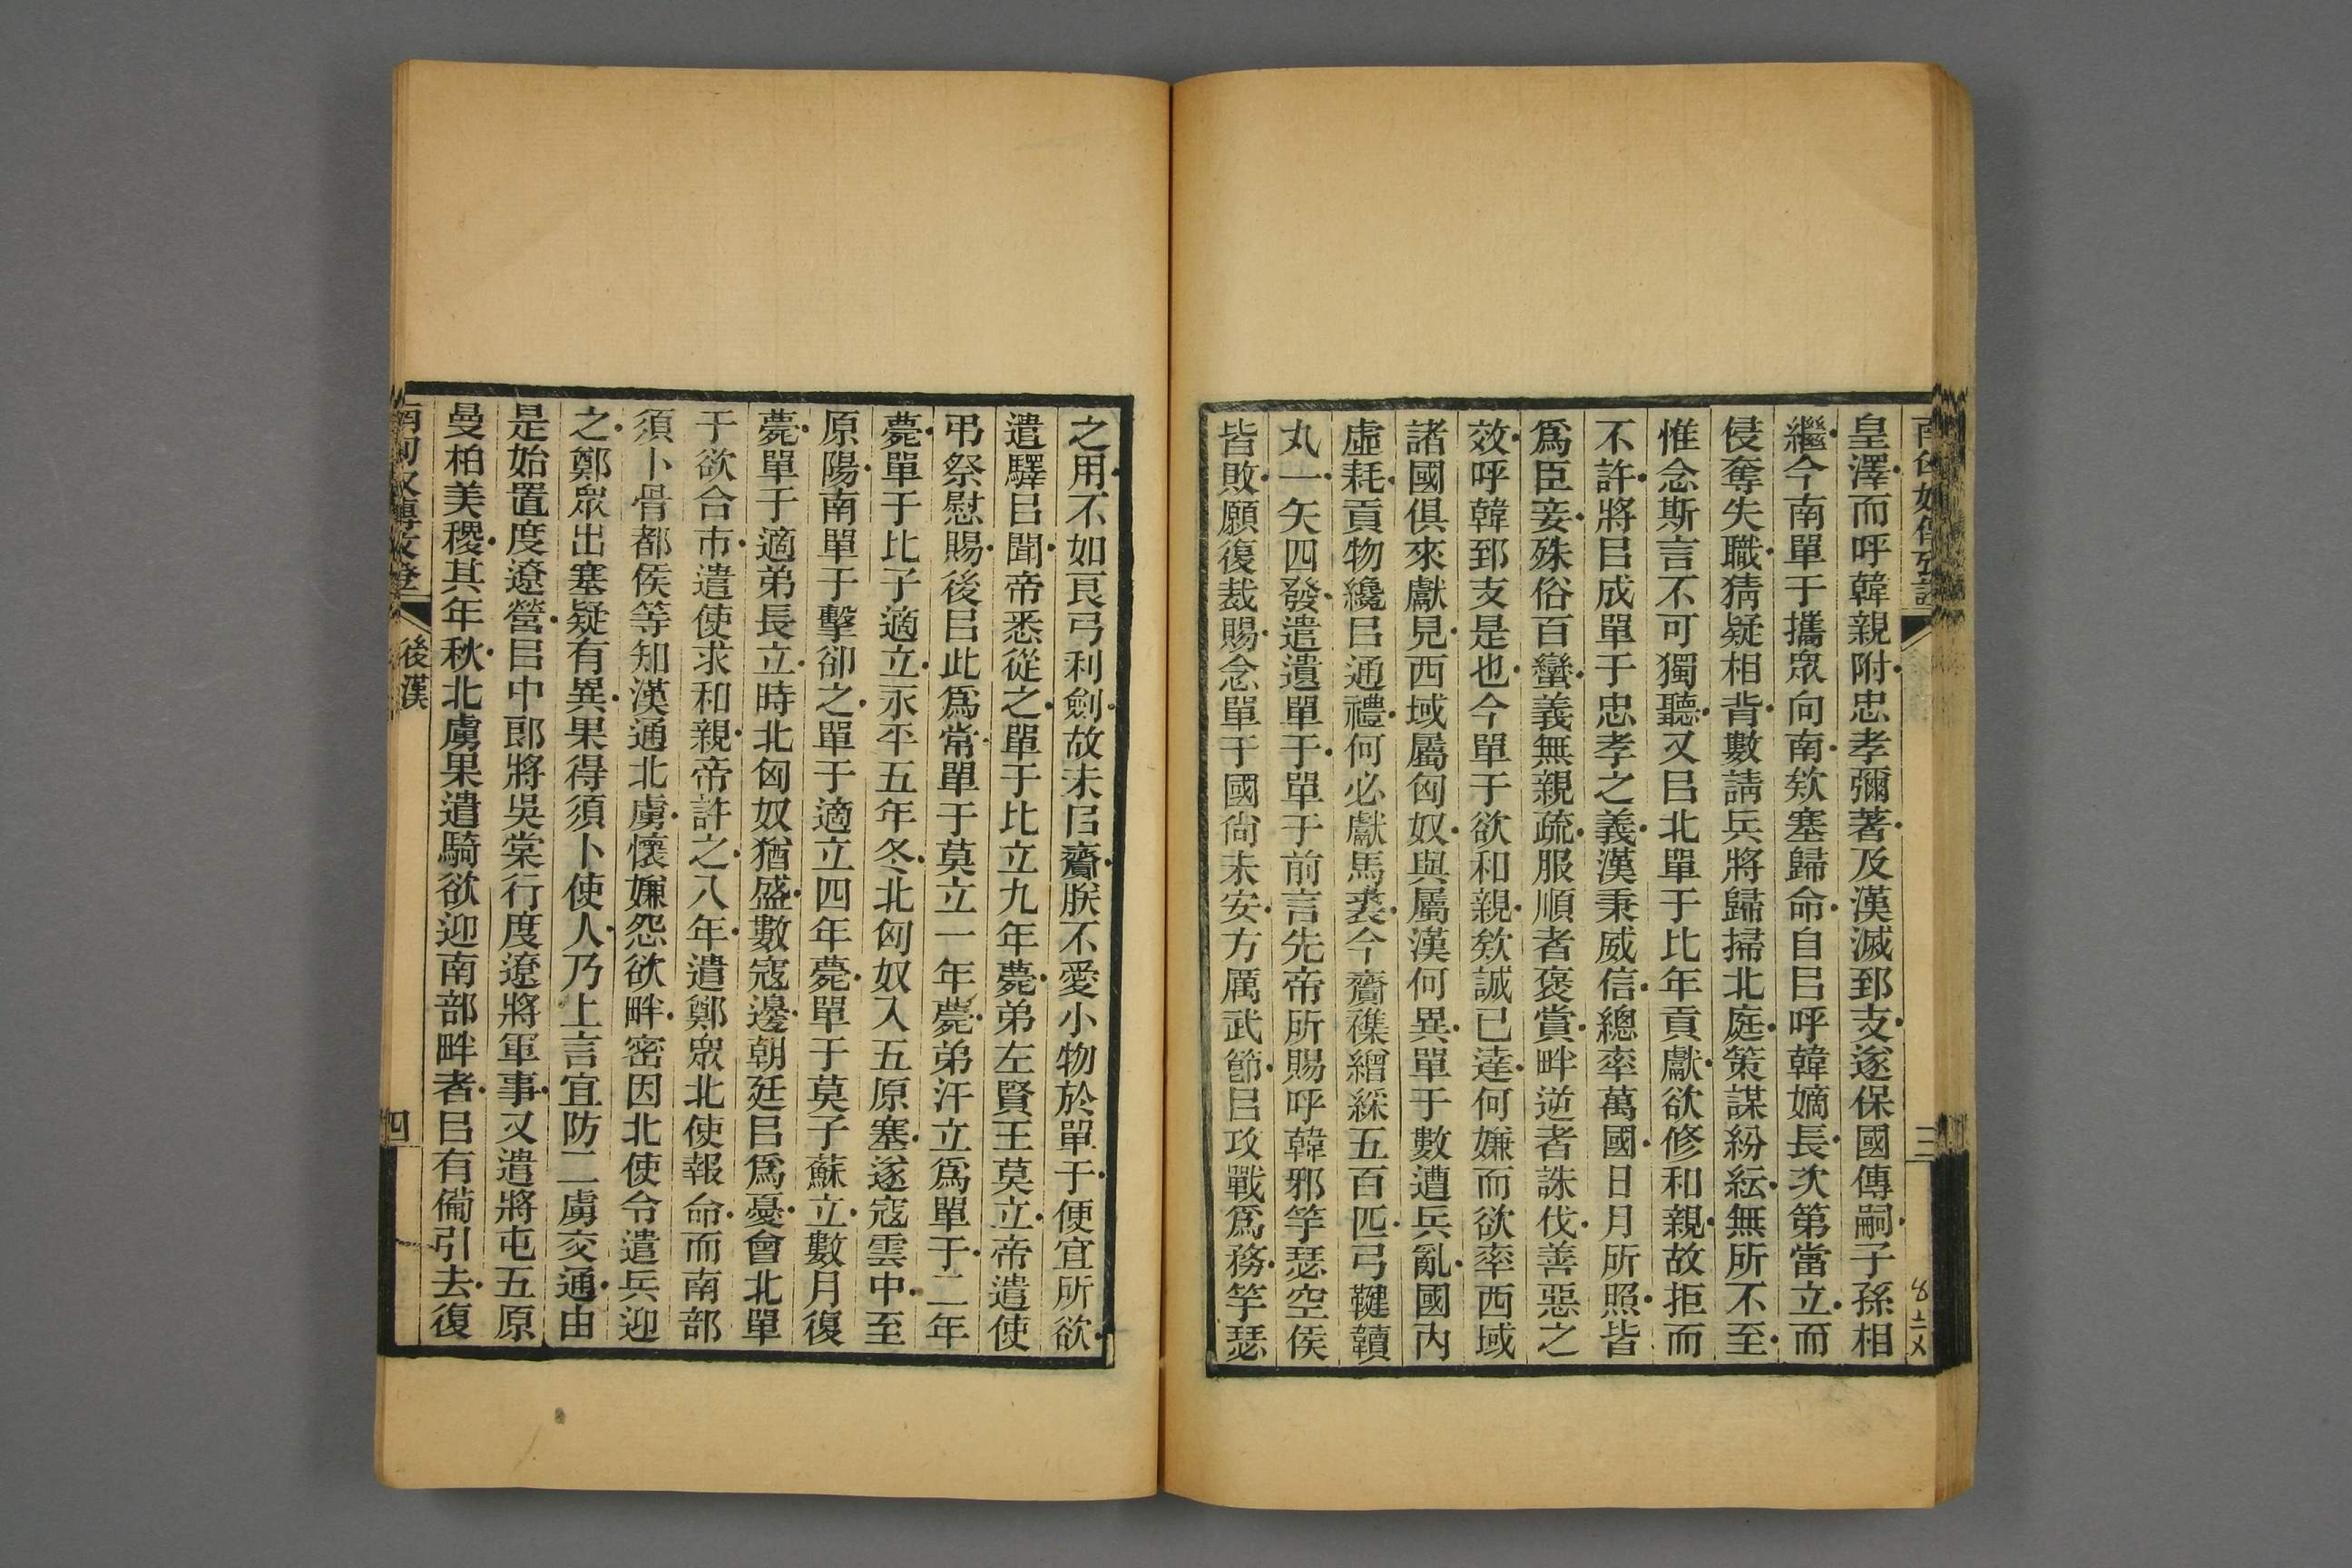 皇澤而呼韓親附忠孝彌著及漢滅郅支遂保國傳嗣子孫相
繼今南單于攜眾向南欵塞歸命自㠯呼韓嫡長次第當立而
侵奪失職猜疑相背數請兵將歸掃北庭策謀紛紜無所不至
惟念斯言不可獨聽又㠯北單于比年貢獻欲修和親故拒而
不許將㠯成單于忠孝之義漢秉威信總率萬國日月所照皆
爲臣妾殊俗百蠻義無親疏服順者褒賞畔逆者誅伐善惡之
效呼韓郅支是也今單于欲和親欵誠已達何嫌而欲率西域
諸國俱來獻見西域屬匈奴與屬漢何異單于數遭兵亂國內
虛耗貢物纔㠯通禮何必獻馬裘今齎襍繒綵五百匹弓鞬韥
丸一矢四發遣遺單于單于前言先帝所賜呼韓邪竽瑟空侯
皆敗願復裁賜念單于國尙未安方厲武節㠯攻戰爲務竽瑟
三
之用不如良弓利劍故未㠯齎朕不愛小物於單于便宜所欲
遣驛㠯聞帝悉從之單于比立九年薨弟左賢王莫立帝遣使
弔祭慰賜後㠯此爲常單于莫立一年薨弟汗立爲單于二年
薨單于比子適立永平五年冬北匈奴入五原塞遂寇雲中至
原陽南單于擊卻之單于適立四年薨單于莫子蘇立數月復
薨單于適弟長立時北匈奴猶盛數寇邊朝廷㠯爲憂會北單
于欲合市遣使求和親帝許之八年遣鄭眾北使報命而南部
須卜骨都侯等知漢通北虜懷嫌怨欲畔密因北使令遣兵迎
之鄭眾出塞疑有異果得須卜使人乃上言宜防二虜交通由
是始置度遼營㠯中郞將吳棠行度遼將軍事又遣將屯五原
曼柏美稷其年秋北虜果遣騎欲迎南部畔者㠯有備引去復
後漢
四